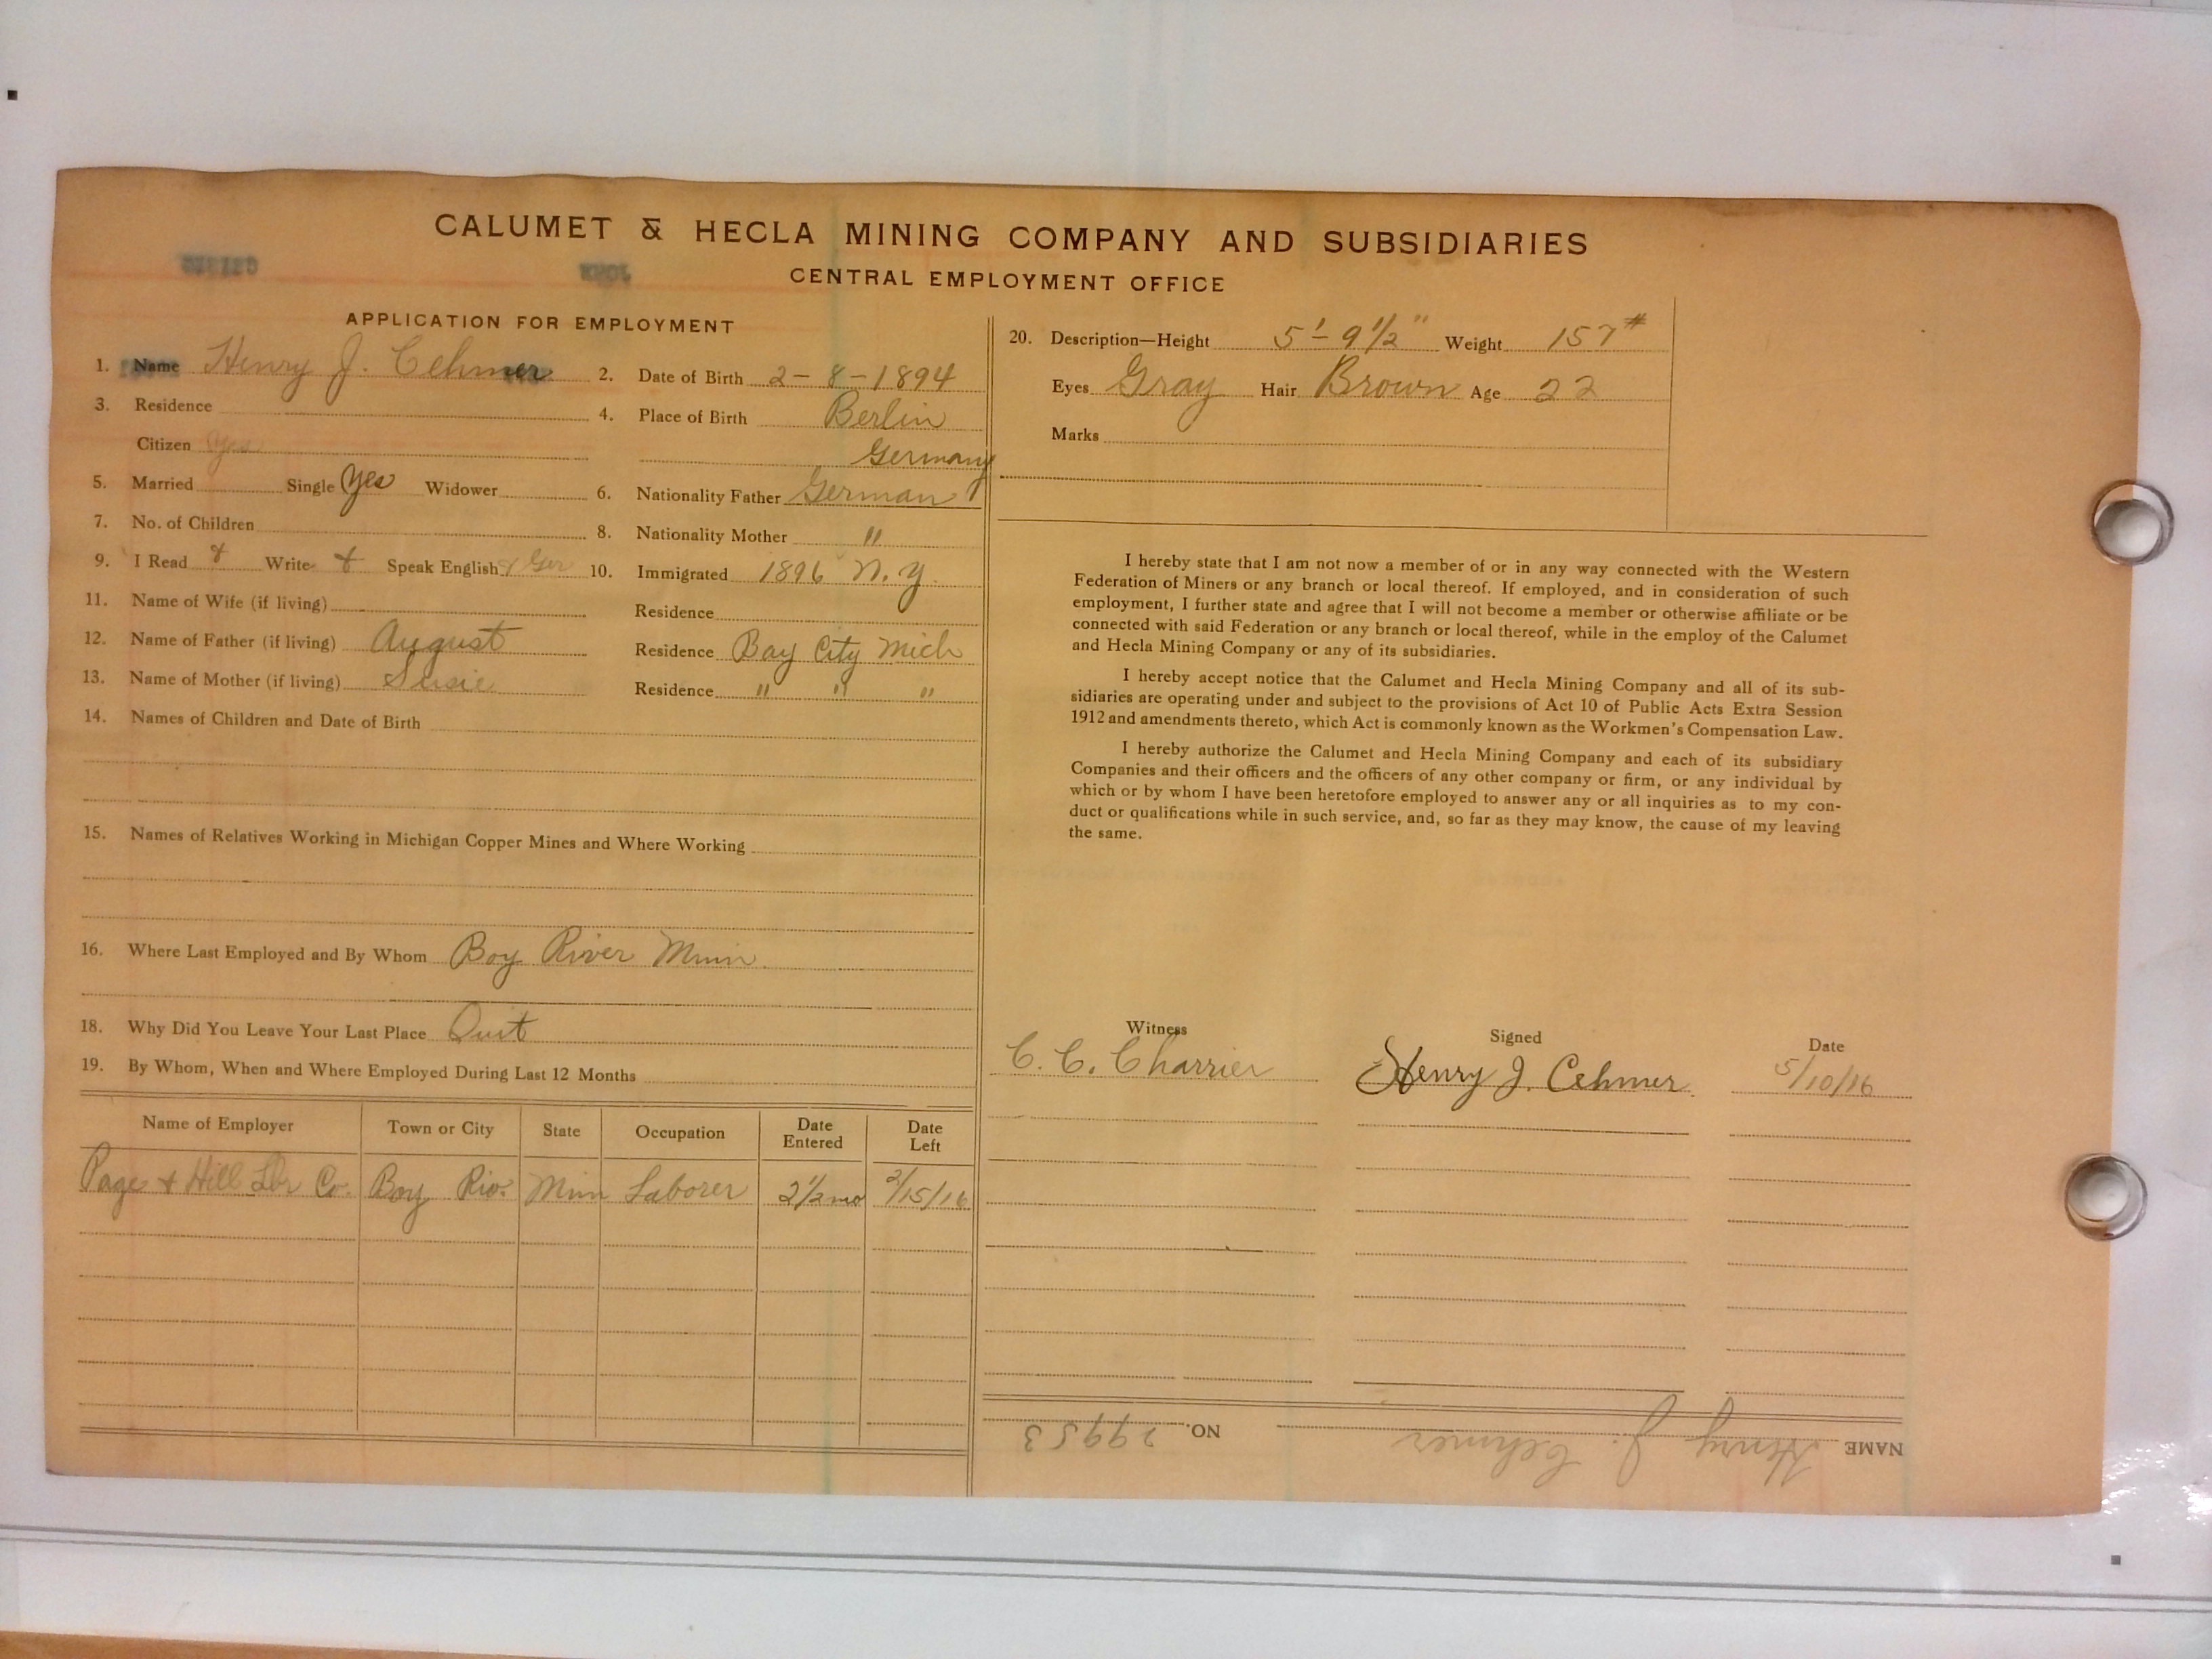 CALUMET & HECLA MINING COMPANY AND SUBSIDIARIES
CENTRAL EMPLOYMENT OFFICE
APPLICATION FOR EMPLOYMENT
1. Name Henry J. Cehmer 2. Date of Birth 2-8-1894
3. Residence 4. Place of Birth Berlin
Citizen Yes Germany
5. Married Single Yes Widower 6. Nationality Father German
7. No. of Children 8. Nationality Mother "
9. I Read & Write & Speak English & Ger 10. Immigrated 1896 N.Y.
11. Name of Wife (if living) Residence
12. Name of Father (if living) August Residence Bay City Mich
13. Name of Mother (if living) Susie Residence " " "
14. Names of Children and Date of Birth
15. Names of Relatives Working in Michigan Copper Mines and Where Working
16. Where Last Employed and By Whom Boy River Minn
18. Why Did You Leave Your Last Place Quit
19. By Whom, When and Where Employed During Last 12 Months
Name of Employer Town or City State Occupation Date Entered Date Left
Page & Hill Lbr Co. Boy Riv. Minn Laborer 2 1/2 mo 2/15/16
20. Description—Height 5'-9 1/2" Weight 157#
Eyes Gray Hair Brown Age 22
Marks
I hereby state that I am not now a member of or in any way connected with the Western
Federation of Miners or any branch or local thereof. If employed, and in consideration of such
employment, I further state and agree that I will not become a member or otherwise affiliate or be
connected with said Federation or any branch or local thereof, while in the employ of the Calumet
and Hecla Mining Company or any of its subsidiaries.
I hereby accept notice that the Calumet and Hecla Mining Company and all of its sub-
sidiaries are operating under and subject to the provisions of Act 10 of Public Acts Extra Session
1912 and amendments thereto, which Act is commonly known as the Workmen's Compensation Law.
I hereby authorize the Calumet and Hecla Mining Company and each of its subsidiary
Companies and their officers and the officers of any other company or firm, or any individual by
which or by whom I have been heretofore employed to answer any or all inquiries as to my con-
duct or qualifications while in such service, and, so far as they may know, the cause of my leaving
the same.
Witness Signed Date
C. C. Charrier Henry J. Cehmer. 5/10/16
NAME Henry J. Cehmer NO. 29953